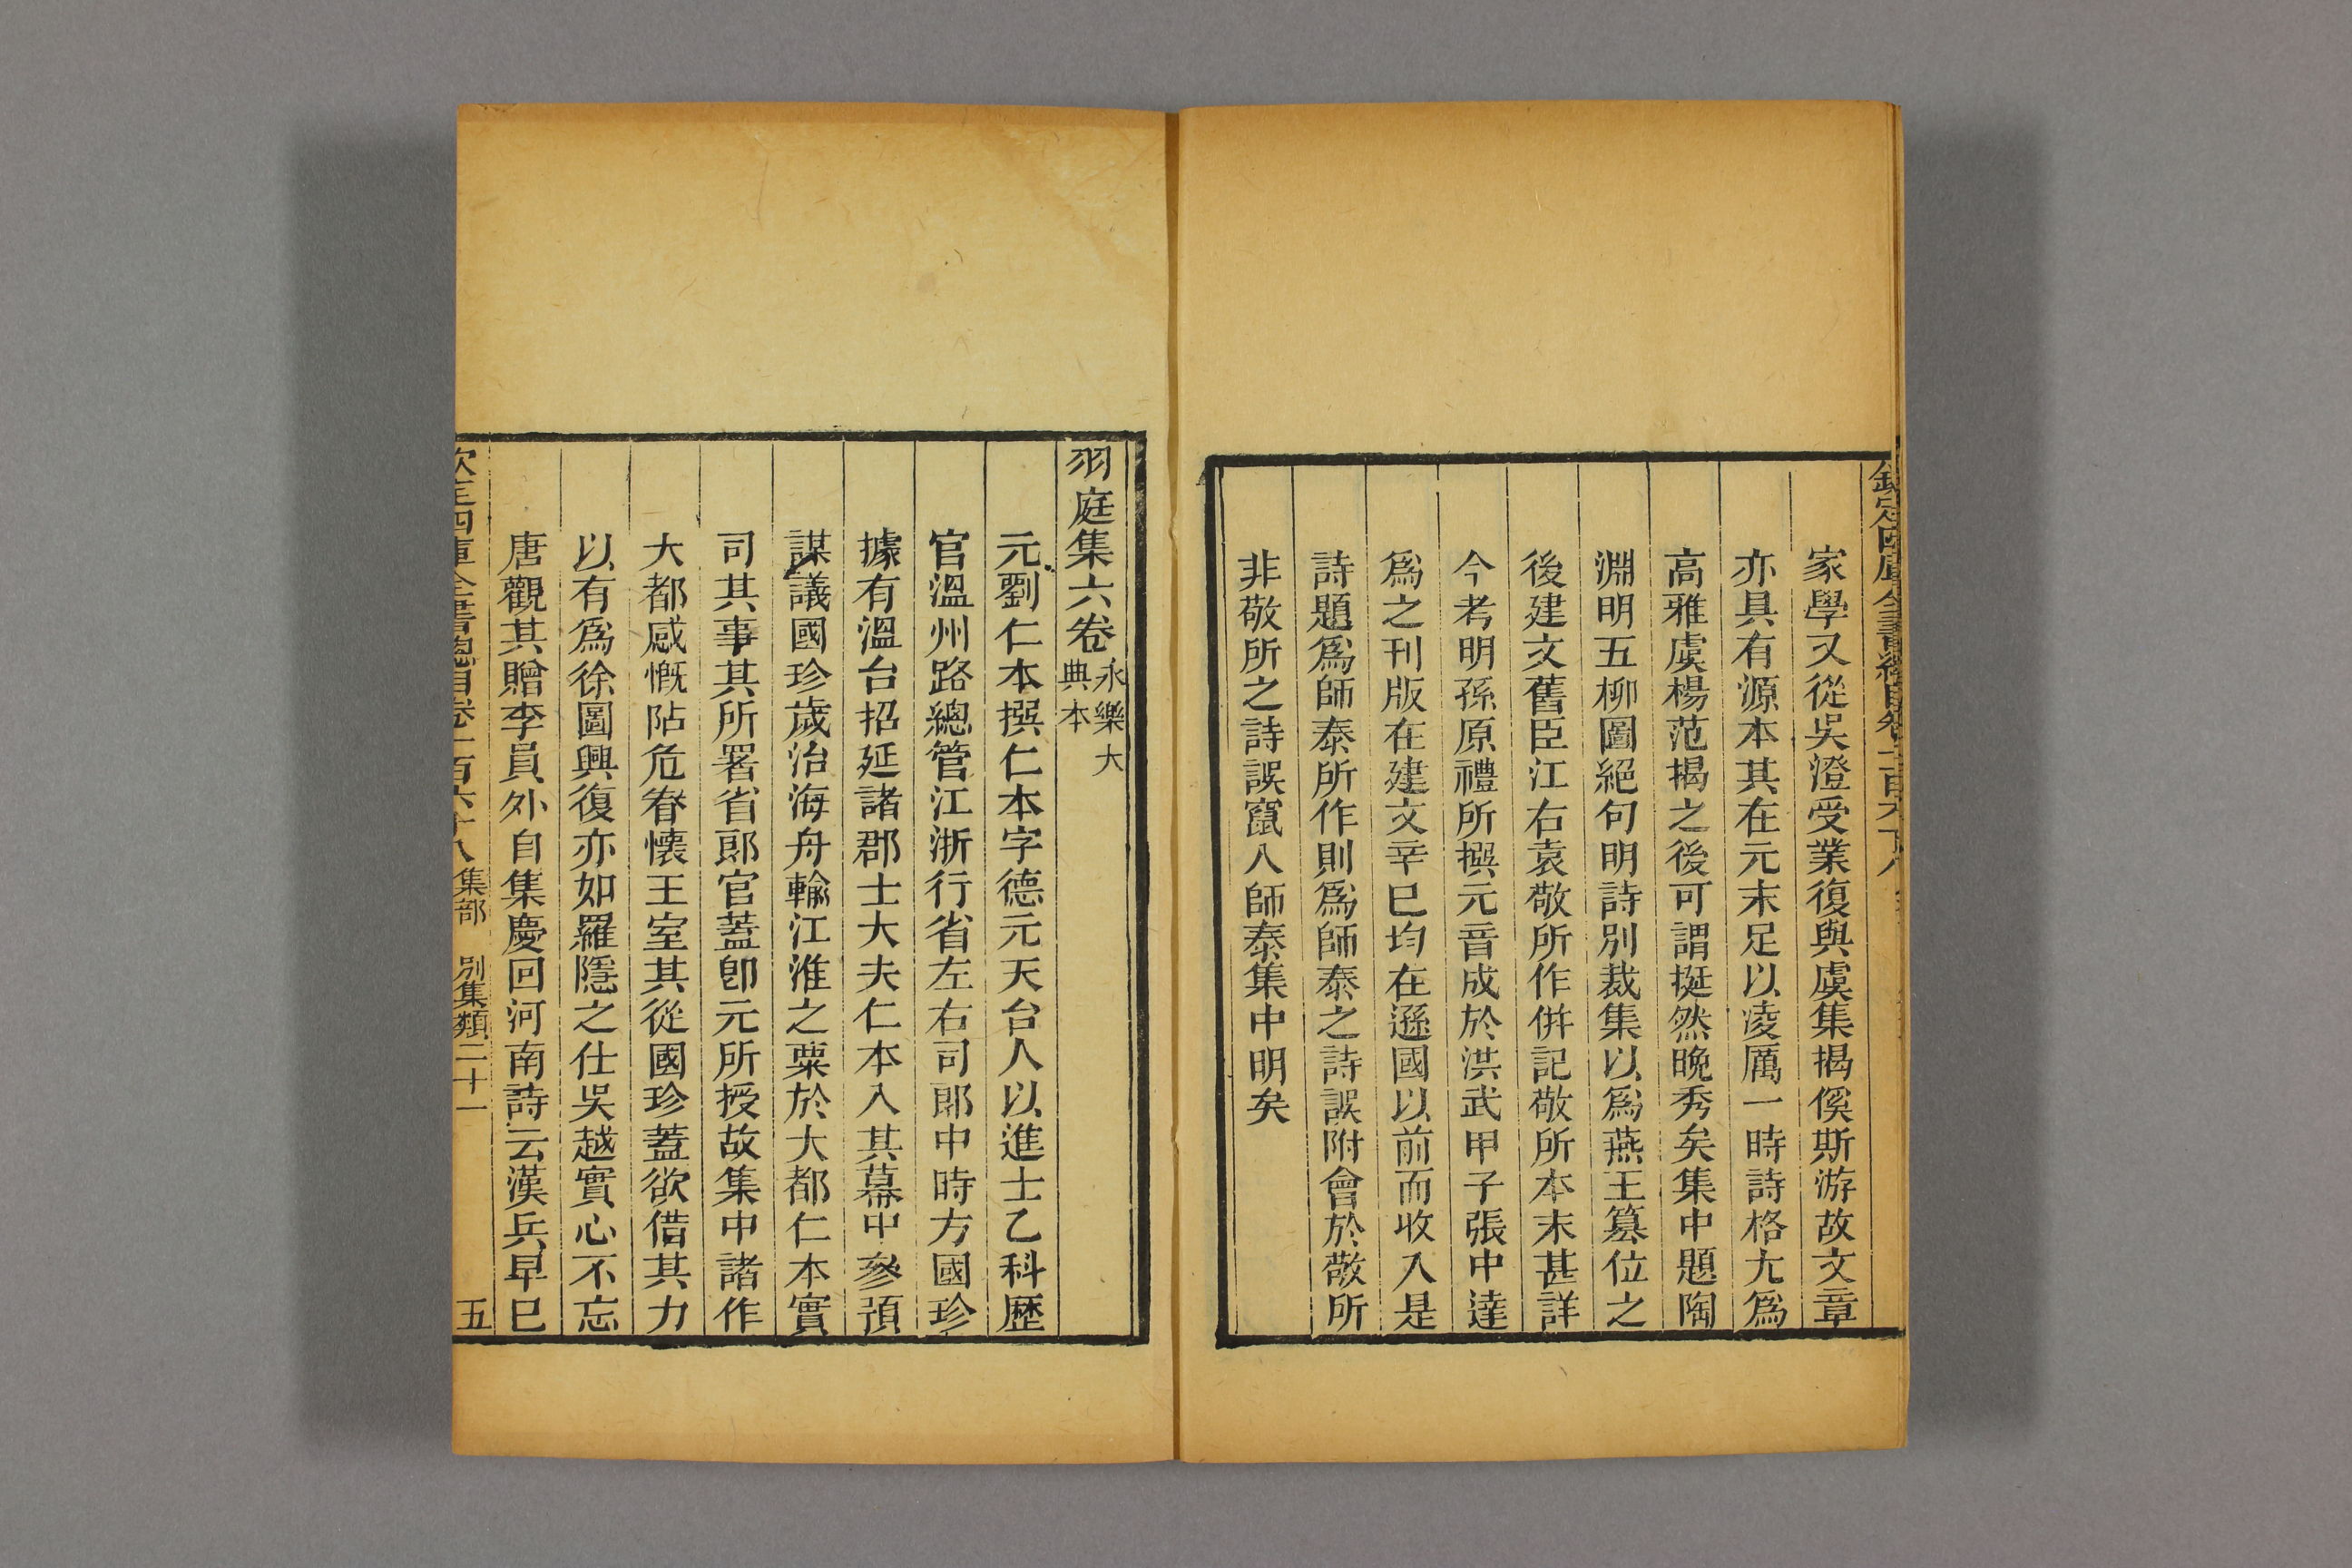 家學又從吳澄受業復與虞集揭傒斯游故文章
亦具有源本其在元末足以凌厲一時詩格尤爲
高雅虞楊范揭之後可謂挺然晚秀矣集中題陶
淵明五柳圖絕句明詩別裁集以爲燕王篡位之
後建文舊臣江右袁敬所作併記敬所本末甚詳
今考明孫原禮所撰元音成於洪武甲子張中達
爲之刊版在建文辛巳均在遜國以前而收入是
詩題爲師泰所作則爲師泰之詩誤附會於敬所
非敬所之詩誤竄入師泰集中明矣
羽庭集六卷
永樂大
典本
元劉仁本撰仁本字德元天台人以進士乙科歷
官溫州路總管江浙行省左右司郎中時方國珍
據有溫台招延諸郡士大夫仁本入其幕中參預
謀議國珍歲治海舟輸江淮之粟於大都仁本實
司其事其所署省郎官蓋卽元所授故集中諸作
大都感慨阽危眷懷王室其從國珍蓋欲借其力
以有爲徐圖興復亦如羅隱之仕吳越實心不忘
唐觀其贈李員外自集慶回河南詩云漢兵早已
欽定四庫全書總目卷一百六十八 集部 別集類二十一 五